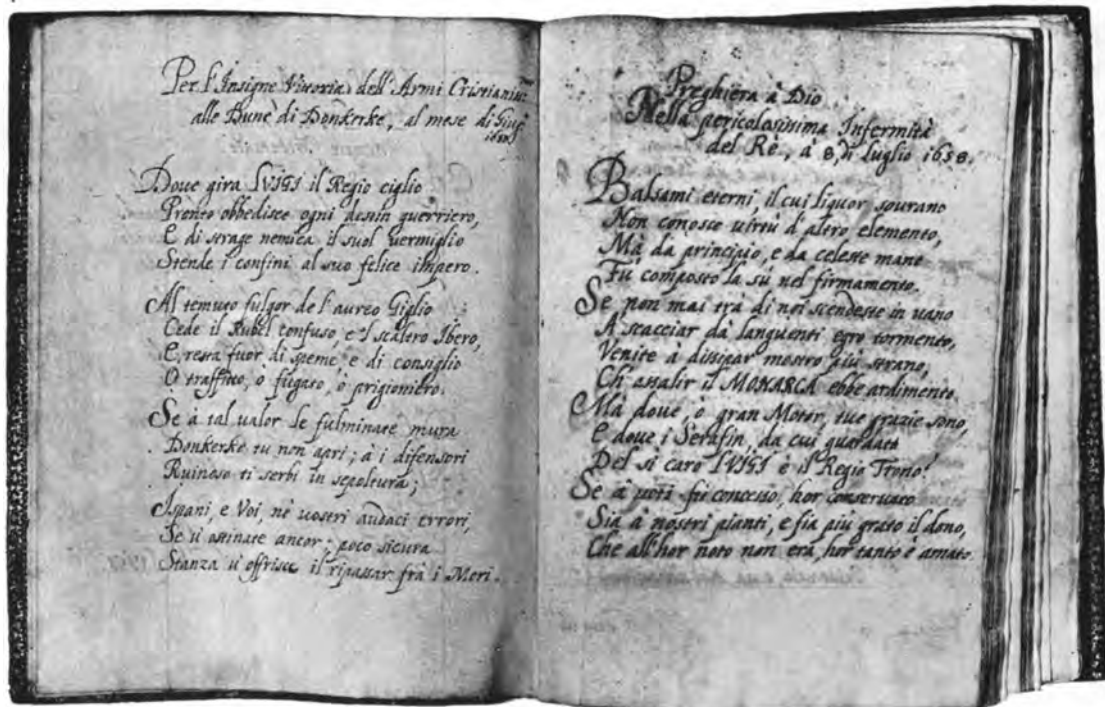 Per l'Insigne Vittoria dell'Armi Cristianiss.me
alle Dune di Donkerke, al mese di Giug.o
1658
Doue gira LVIGI il Regio ciglio
Pronto obbedisce ogni destin guerriero,
E di strage nemica il suol vermiglio
Stende i confini al suo felice impero.
Al temuto fulgor de l'aureo Giglio
Cede il Rubel confuso, e'l scaltro Ibero,
E resta fuor di speme, e di consiglio
O trafitto, ò fugato, ò prigioniero.
Se à tal valor le fulminate mura
Donkerke tu non apri; à i difensori
Ruinoso ti serbi in sepoltura;
Ispani, e Voi, nè uostri audaci errori,
Se u'ostinate ancor; poco sicura
Stanza u'offrisce il ripassar frà i Mori.
Preghiera à Dio
Nella pericolosissima Infermità
del Rè, à 8, di luglio 1658.
Balsami eterni, il cui liquor sourano
Non conosce uirtù d'altro elemento,
Mà da principio, e da celeste mano
Fù composto la sù nel firmamento.
Se non mai trà di noi scendeste in uano
A scacciar dà languenti egro tormento,
Venite à dissipar mostro più strano,
Ch'assalir il MONARCA ebbe ardimento.
Mà doue, ò gran Motor, tue grazie sono,
E doue i Serafin, da cui guardato
Del si caro LVIGI è il Regio Trono?
Se à uoti fù concesso, hor conseruato
Sia à nostri pianti, e fia più grato il dono,
Che all'hor noto non era, hor tanto è amato.